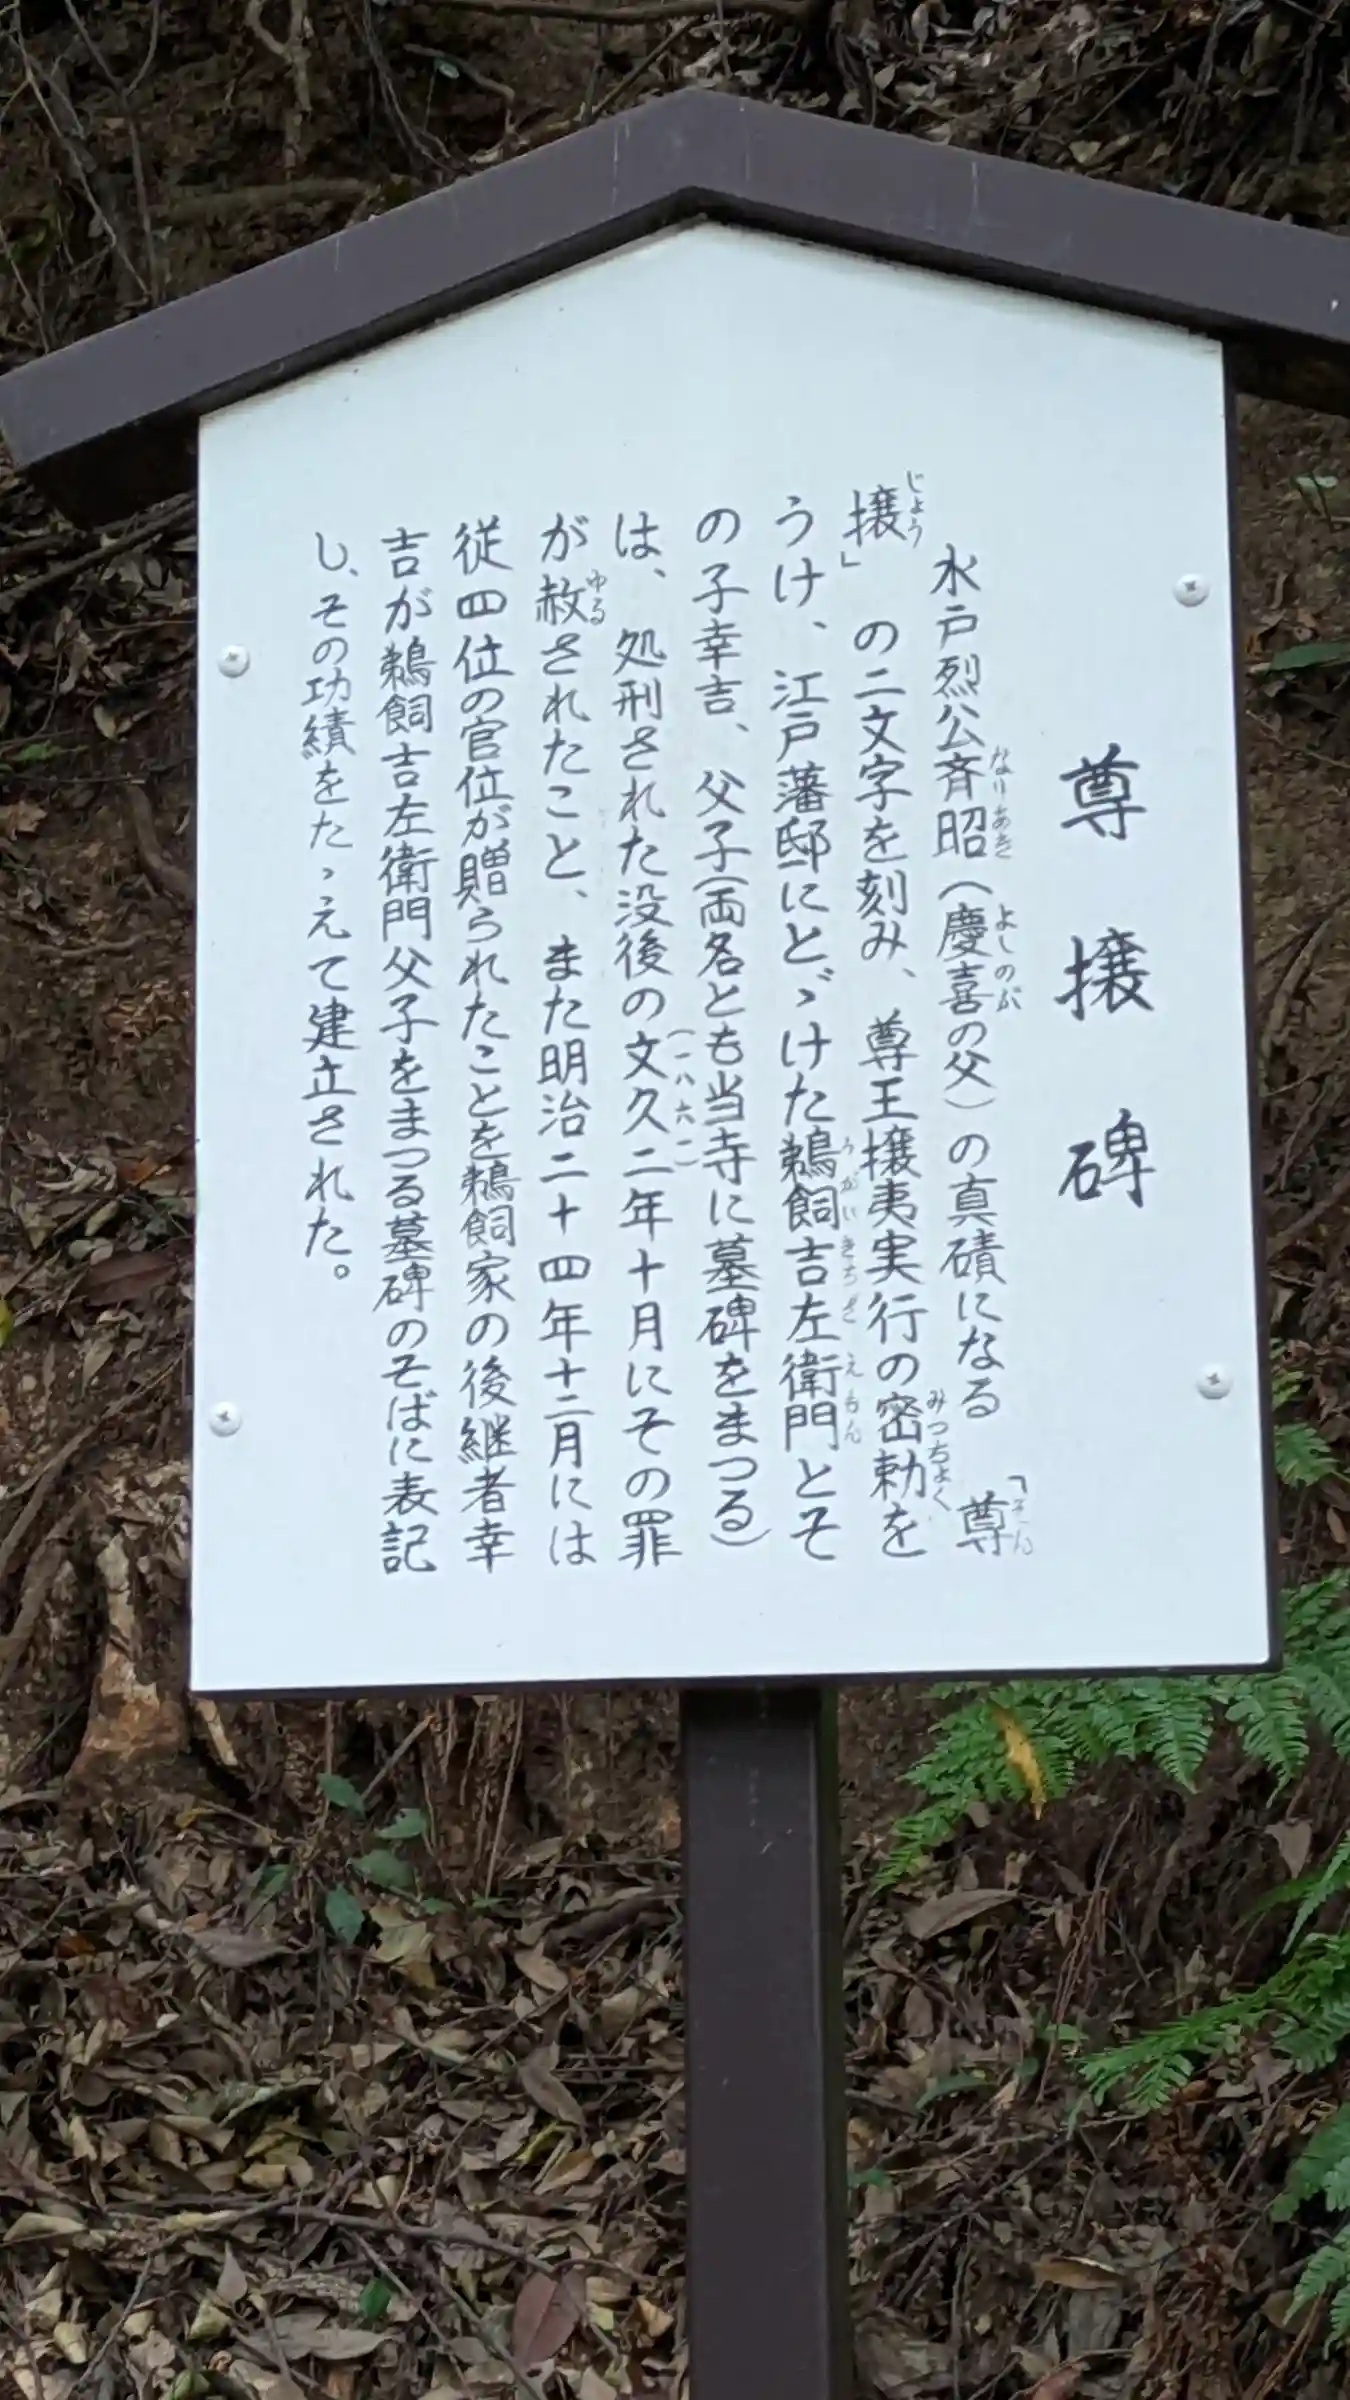 尊攘碑
水戸烈公斉昭（慶喜の父）の真磧になる「尊
攘」の二文字を刻み、尊王攘夷実行の密勅を
うけ、江戸藩邸にとゞけた鵜飼吉左衛門とそ
の子幸吉、父子（両名とも当寺に墓碑をまつる）
は、処刑された没後の文久二年十月にその罪
が赦されたこと、また明治二十四年十二月には
従四位の官位が贈られたことを鵜飼家の後継者幸
吉が鵜飼吉左衛門父子をまつる墓碑のそばに表記
し、その功績をたゝえて建立された。
なりあき
よしのぶ
そん
じょう
みつちょく
うがいきちざえもん
（一八六二）
ゆる